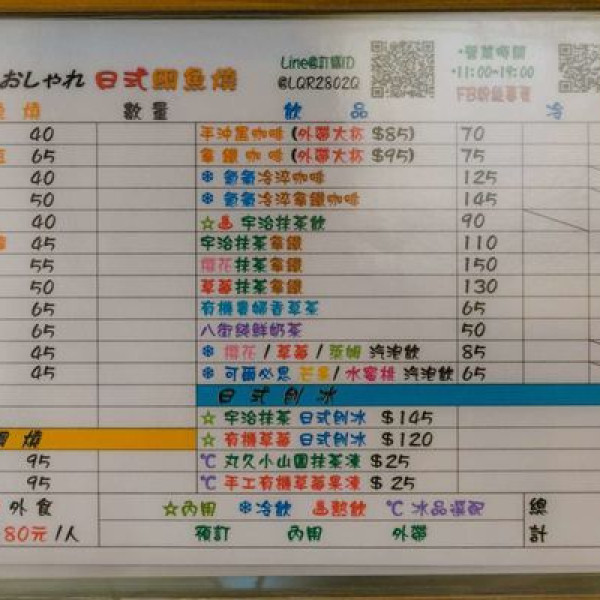 おしゃれ 日式鯛魚燒
Line@訂購ID
@LQR2802Q
•營業時間
•11:00~19:00
燒 數量 飲品 冷
40 手沖黑咖啡 (外帶大杯 $85) 70
65 拿鐵咖啡 (外帶大杯 $95) 75
40 ❄ 氮氣冷淬咖啡 125
50 ❄ 氮氣冷淬拿鐵咖啡 145
40 ☆♨ 宇治抹茶飲 90
45 宇治抹茶拿鐵 110
55 櫻花抹茶拿鐵 150
50 草莓抹茶拿鐵 130
65 有機貴婦香草茶 65
65 八街純鮮奶茶 50
45 ❄ 櫻花 / 草莓 / 萊姆 汽泡飲 85
45 ❄ 可爾必思 芒果/ 水蜜桃 汽泡飲 65
日式刨冰
☆ 宇治抹茶 日式刨冰 $145
燒 ☆ 有機草莓 日式刨冰 $120
95 ℃ 丸久小山園抹茶凍 $25
95 ℃ 手工有機草莓果凍 $ 25
外食 ☆內用 ❄冷飲 ♨熱飲 ℃ 冰品選配 總
80元 /人 預訂 內用 外帶 計